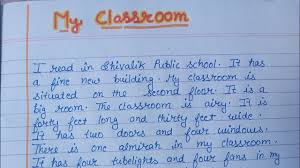 My Classroom
I read in Shivalik Public school. It has
a fine new building. My classroom is
situated on the second floor. It is a
big room. The classroom is airy. It is
forty feet long and thirty feet wide.
It has two doors and four windows.
There is one almirah in my classroom.
It has four tubelights and four fans in my